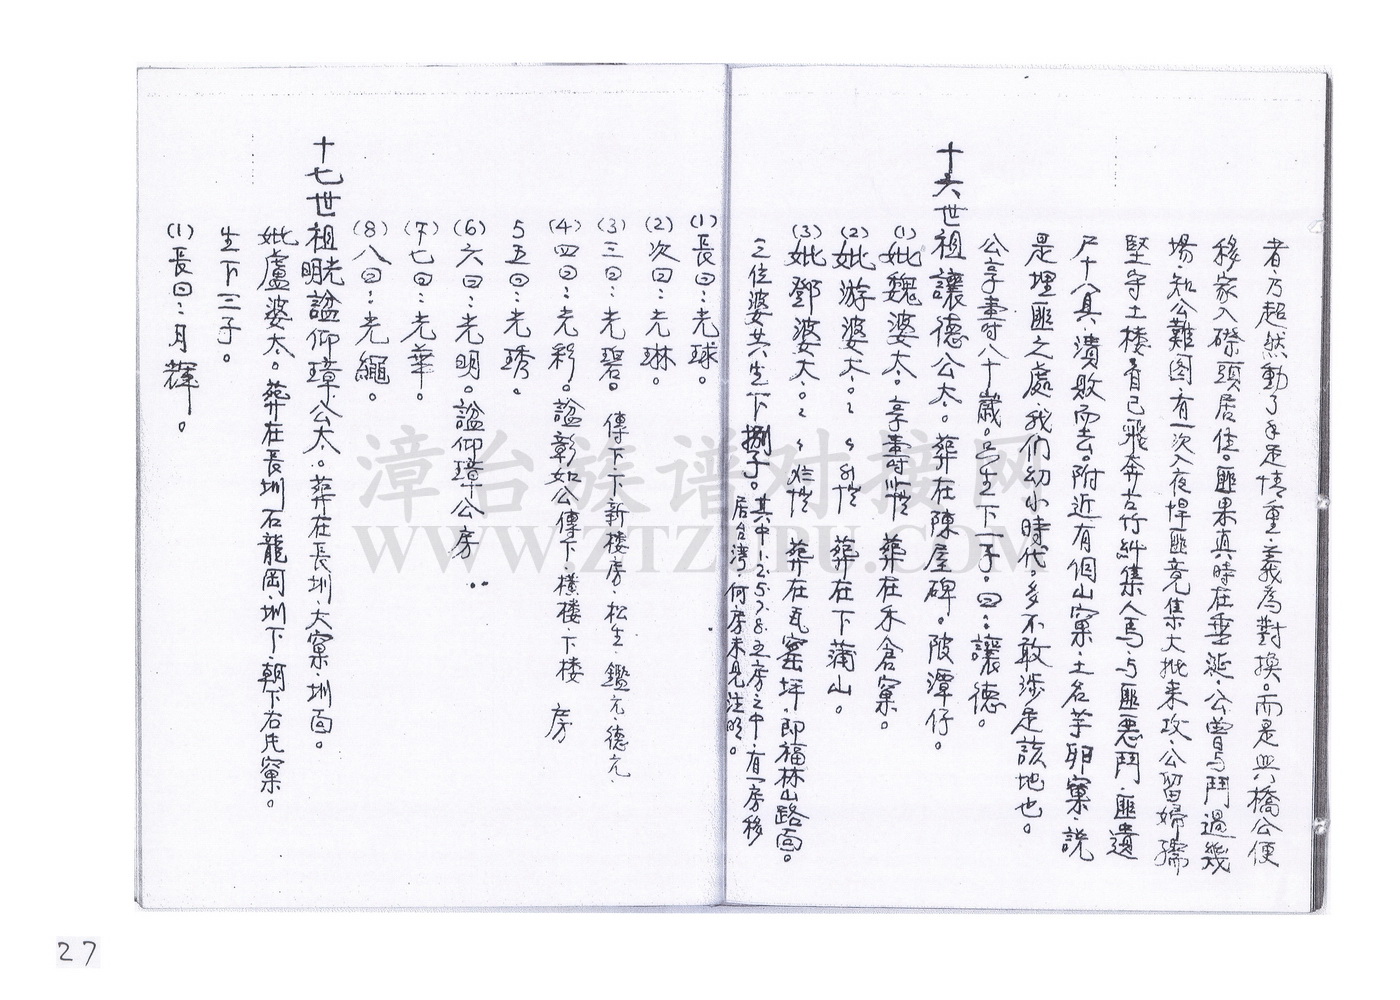 者·乃超然動了手足情重·義為對換。而是興橋公便
移家入磜頭居住。匪果真時在垂涎·公曾與鬥過幾
場·知公難图·有一次入夜悍匪竟集大批来攻·公留婦孺
堅守土楼·自己飛奔苦竹糾集人馬·与匪悪鬥·匪遺
尸十八具·潰敗而去。附近有個山窠·土名芋卵窠·説
是埋匪之處·我们幼小時代·多不敢涉足該地也。
公享夀八十歲。只生下一子。曰：讓德。
十六世祖讓德公太。葬在陳屋碑。陂潭仔。
(1)妣魏婆太。享夀 葬在禾倉窠。
(2)妣游婆太。 葬在下蒲山。
(3)妣鄧婆太。 葬在瓦窰坪·即福林山路面。
三位婆共生下捌子。其中1.2.5.7.8.五房之中·有一房移
居台湾·何房未見注明。
(1)長曰：光球。
(2)次曰：光琳。
(3)三曰：光碧。傳下下新楼房·松生·鑑元·德元
(4)四曰：光彩。諡彰如公傳下·横楼·下楼 房
5五曰：光琇。
(6)六曰：光明。諡仰璋公房
(7)七曰：光華。
(8)八曰：光繩。
十七世祖光明諡仰璋公太。葬在長圳·大窠·圳面。
妣盧婆太。葬在長圳石龍岡·圳下·朝下右氏窠。
生下三子。
(1)長曰：月輝。
漳台族谱对接网
WWW.ZTZUPU.COM
27